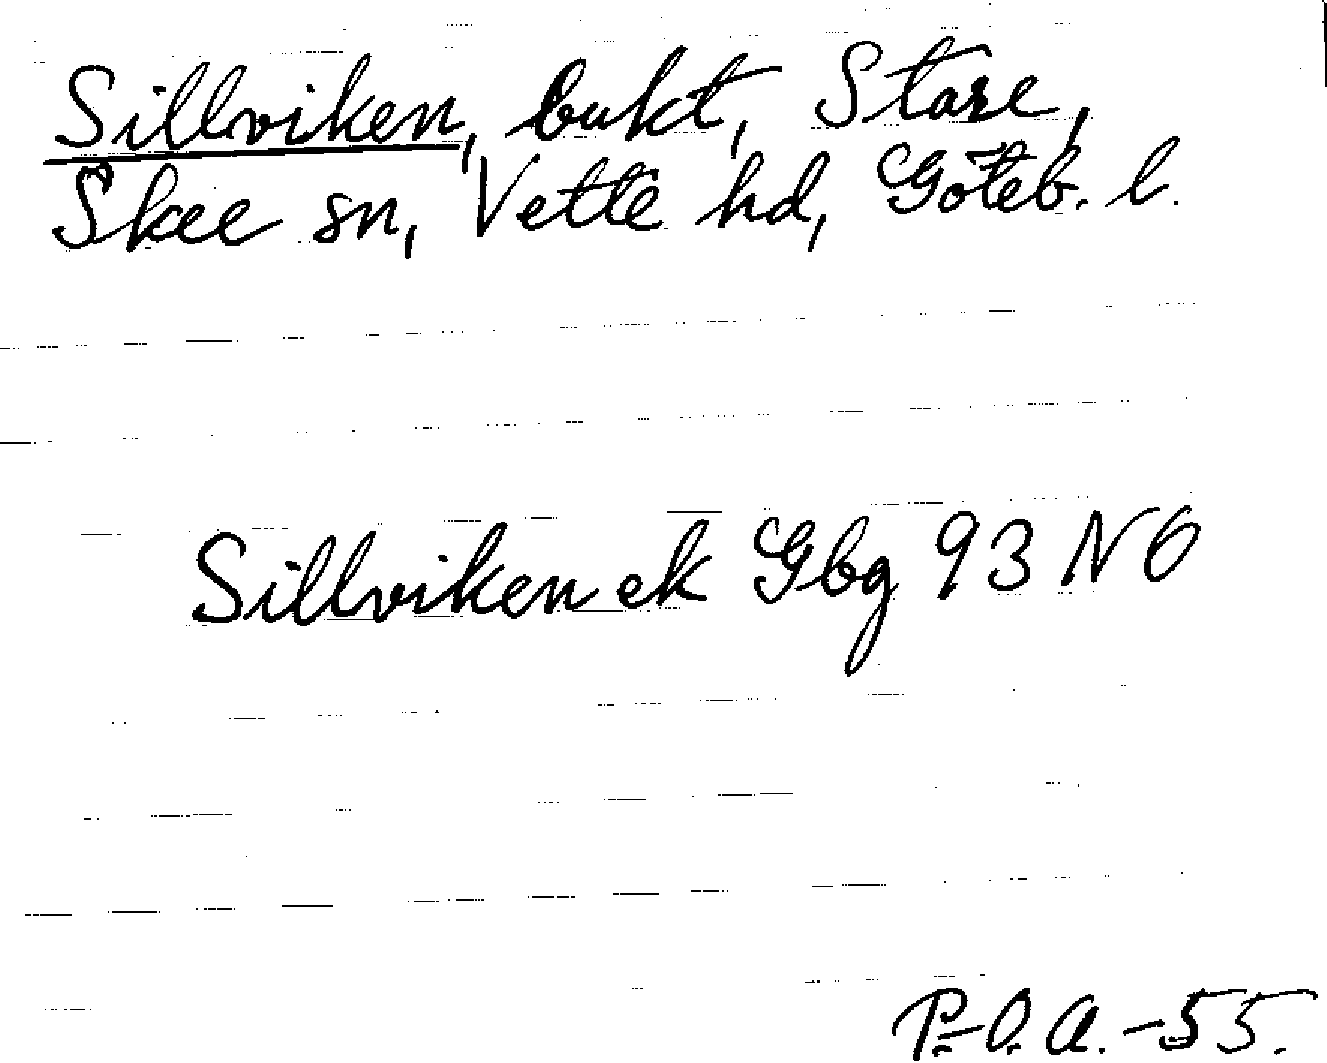 Sillviken, bukt, Stare,
Skee sn, Vette hd, Göteb. l.
Sillviken ek Gbg 93 NO
P.-O. A. -55.